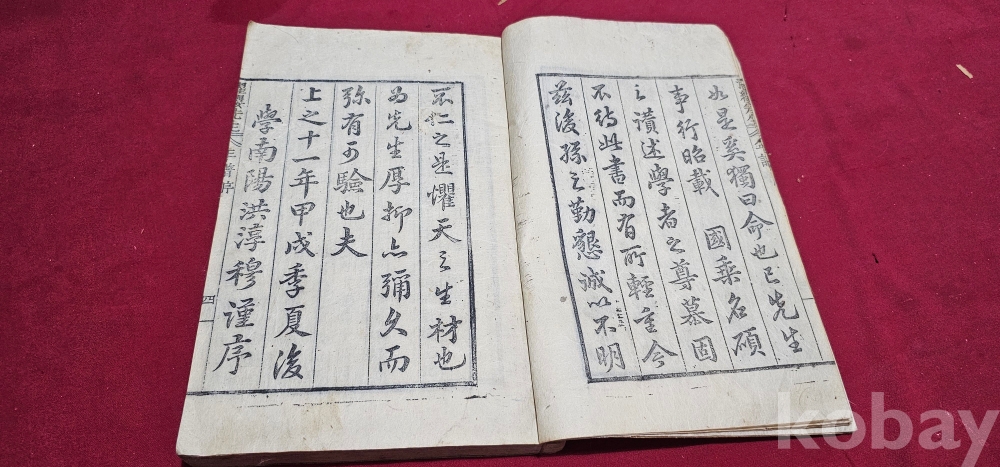 如是奚獨曰命也已先生
事行昭載 國乘名碩
之讚述學者之尊慕固
不待此書而有所輕重今
茲後孫之勤懇誠以不明
不仁之是懼天之生材也
爲先生厚抑亦彌久而
弥有可驗也夫
上之十一年甲戌季夏後
學南陽洪淳穆謹序
四
kobay